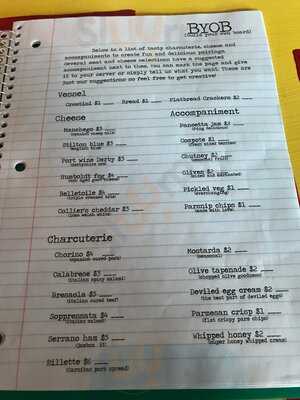 BYOB
(Build your own board)
Below is a list of tasty charcuterie, cheese and
accompaniments to create fun and delicious pairings.
Several meat and cheese selections have a suggested
accompaniment next to them. You can mark the page and give
it to your server or simply tell us what you want. These are
just our suggestions so feel free to get creative!
Vessel
Crostini $1 Bread $1 Flatbread Crackers $2
Cheese
Manchego $3
Stilton blue $3
(English blue)
Port wine Derby $3
Humboldt fog $4
Belletoile $4
(triple creme brie)
Collier's cheddar $3
Accompaniment
Pancetta jam $3
Compote $1
Chutney $3
Olives $2
Pickled veg $1
Parsnip chips $1
(made with love)
Charcuterie
Chorizo $4
(Spanish cured pork)
Calabrese $3
(Italian spicy salami)
Bresaola $3
(Italian cured beef)
Soppressata $4
(Italian salami)
Serrano ham $3
Rillette $6
Mostarda $2
(seasonal)
Olive tapenade $2
(chopped olive goodness)
Deviled egg cream $2
(the best part of deviled eggs)
Parmesan crisp $1
Whipped honey $2
(super honey whipped cream)